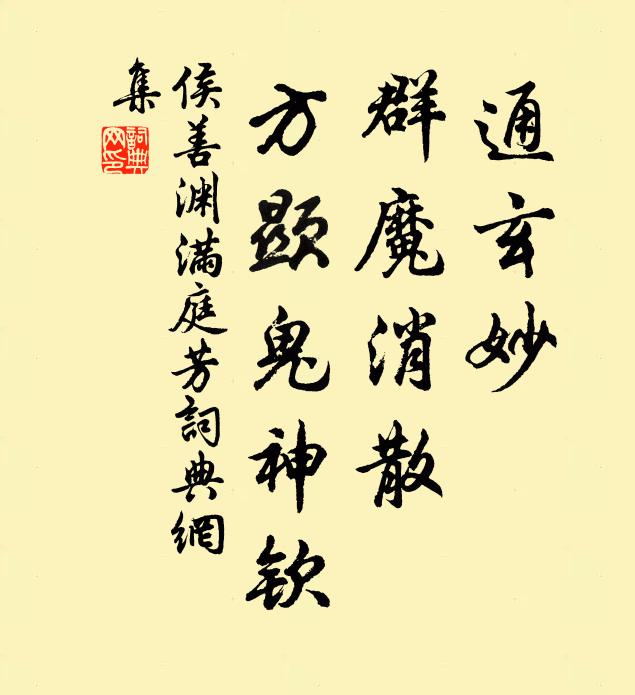 通玄妙
群魔消散
方顯鬼神欽
侯善渊满庭芳詞典網
集
詞典
网印